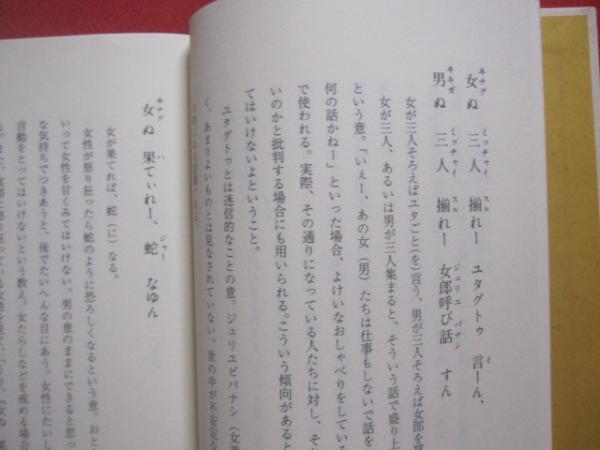 女ぬ 三人 揃れー ユタグトゥ 言ーん、
男ぬ 三人 揃れー 女郎呼び話 すん
女が三人そろえばユタごと(を)言う、男が三人そろえば女郎を
女が三人、あるいは男が三人集まると、そういう話で盛り上
という意。「いぇー、あの女(男)たちは仕事もしないで話を
何の話かねー」といった場合、よけいなおしゃべりをしている
で使われる。実際、その通りになっている人たちに対し、そ
いのかと批判する場合にも用いられる。こういう傾向があると
てはいけないよということ。
ユタグトゥとは迷信的なことの意。ジュリユビバナシ(女
く、あまりよいものとは見なされていない。世の中が不安定な
女ぬ 果てぃれー、蛇 なゆん
女が果てれば、蛇(に)なる。
女性が怒り狂ったら蛇のように恐ろしくなるという意。おと
いって女性を甘くみてはいけない。男の意のままにできると思っ
な気持ちでつきあうと、後でたいへんな目にあう。女性にたいし
言動をとってはいけないという教え。女たらしなどを戒める場合